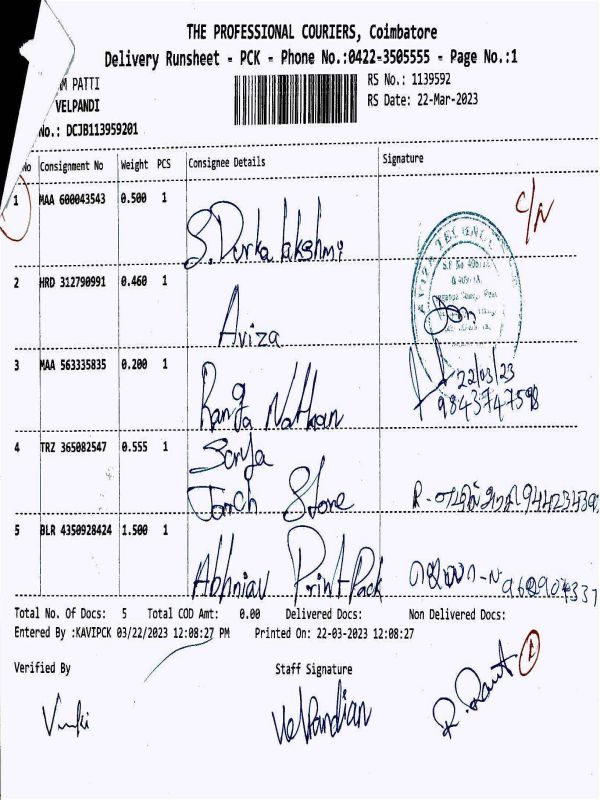 THE PROFESSIONAL COURIERS, Coimbatore
Delivery Runsheet - PCK - Phone No.:0422-3505555 - Page No.:1
PATTI
RS No.: 1139592
VELPANDI
RS Date: 22-Mar-2023
No.: DCJB113959201
No Consignment No Weight PCS Consignee Details Signature
1 MAA 600043543 0.500 1 S. Durka lakshmi C/N
2 HRD 312790991 0.460 1 Aviza
3 MAA 563335835 0.200 1 Ranga Nathan 22/03/23
9843747598
4 TRZ 365082547 0.555 1 Sorya
Torch Stone R-
5 BLR 4350928424 1.500 1 Abhniav Print Pack
Total No. Of Docs: 5 Total COD Amt: 0.00 Delivered Docs: Non Delivered Docs:
Entered By :KAVIPCK 03/22/2023 12:08:27 PM Printed On: 22-03-2023 12:08:27
Verified By Staff Signature
Velpandian